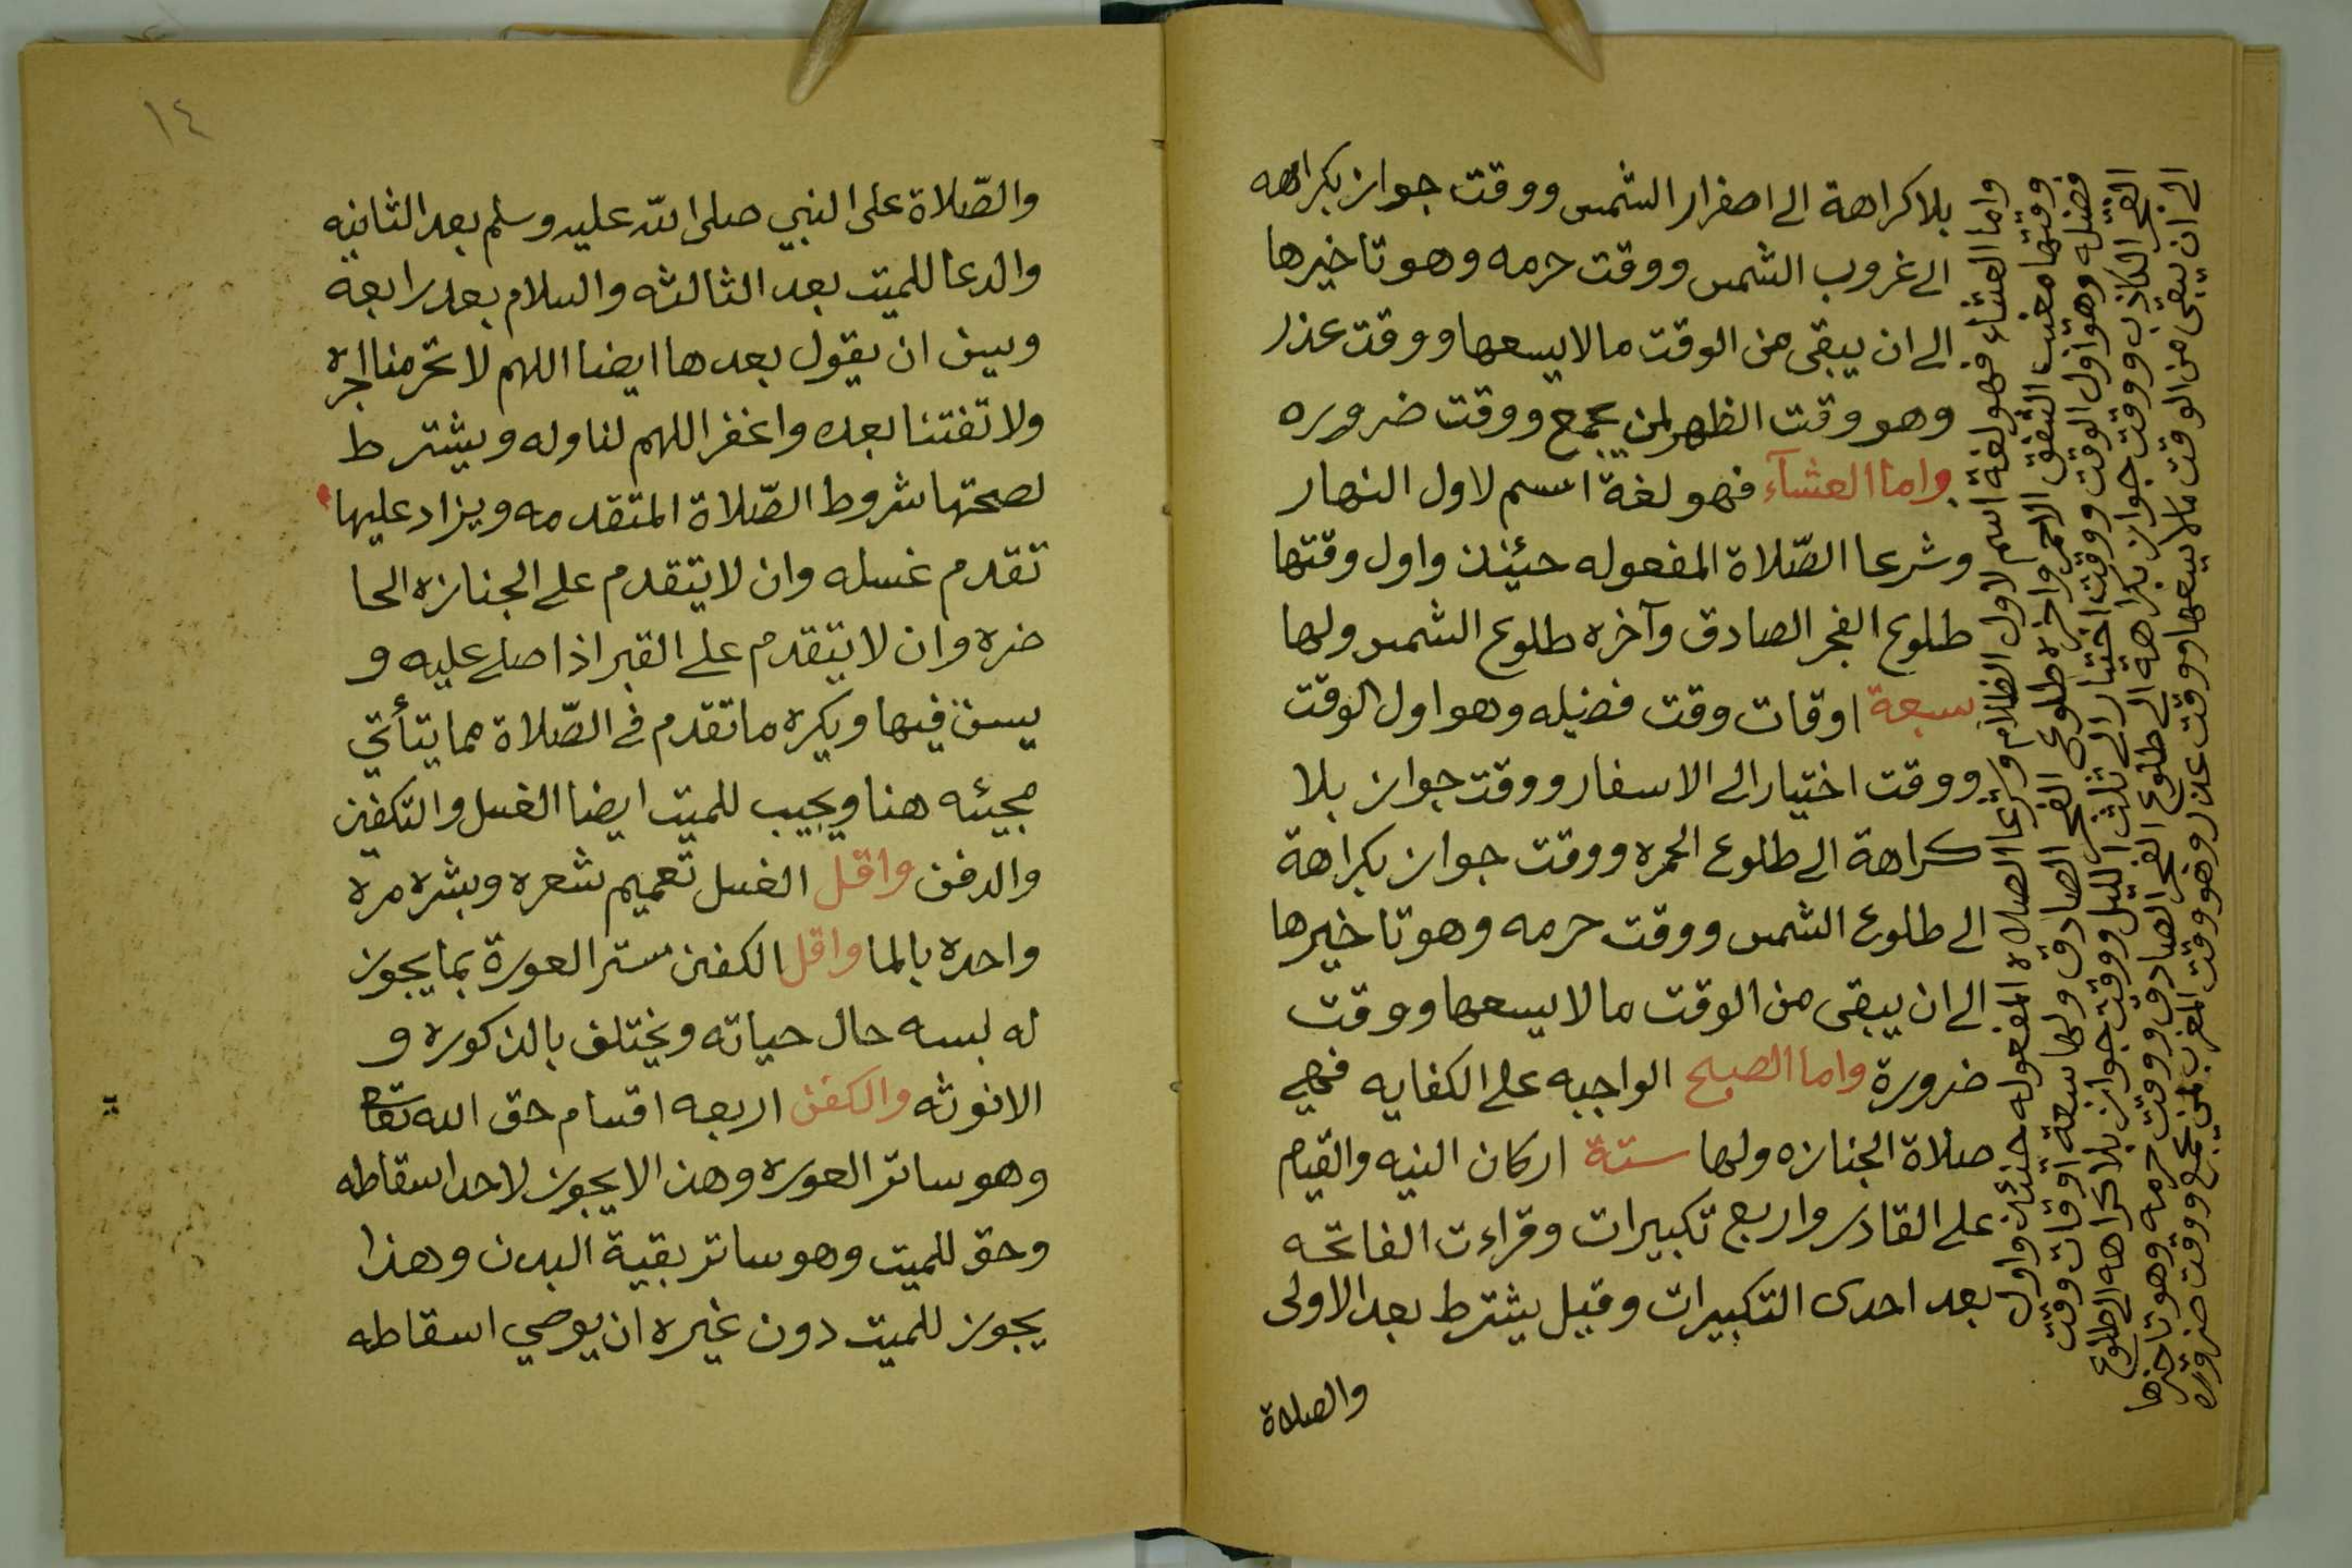 بلا كراهة الى اصفرار الشمس ووقت جواز بكراهه
الى غروب الشمس ووقت حرمه وهو تاخيرها
الى ان يبقى من الوقت ما لا يسعها ووقت عذر
وهو وقت الظهر لمن يجمع ووقت ضروره
واما العشآء فهو لغة اسم لاول النهار
وشرعا الصّلاة المفعوله حينئذ واول وقتها
طلوع الفجر الصادق وآخره طلوع الشمس ولها
سبعة اوقات وقت فضيله وهو اول الوقت
ووقت اختيار الى الاسفار ووقت جواز بلا
كراهة الى طلوع الحمره ووقت جواز بكراهة
الى طلوع الشمس ووقت حرمه وهو تاخيرها
الى ان يبقى من الوقت ما لا يسعها ووقت
ضرورة واما الصبح الواجبه على الكفايه فهي
صلاة الجنازه ولها ستة اركان النيه والقيام
على القادر واربع تكبيرات وقراءت الفاتحه
بعد احدى التكبيرات وقيل يشترط بعد الاولى
والصلاة
واما العشاء فهو لغة اسم لاول الظلام وشرعا الصلاه المفعوله حينئذ واول
وقتها مغيب الشفق الاحمر واخره طلوع الفجر الصادق ولها سبعة اوقات وقت
فضيله وهو اول الوقت ووقت اختيار الى ثلث الليل ووقت جواز بلا كراهه الى طلوع
الفجر الكاذب ووقت جواز بكراهة الى طلوع الفجر الصادق ووقت حرمه وهو تاخيرها
الى ان يبقى من الوقت ما لا يسعها ووقت عذر وهو وقت المغرب لمن يجمع ووقت ضروره
١٤
والصّلاة على النبي صلى الله عليه وسلم بعد الثانيه
والدعا للميت بعد الثالثه والسلام بعد رابعة
ويسن ان يقول بعدها ايضا اللهم لا تحرمنا اجره
ولا تفتنا بعده واغفر اللهم لنا وله ويشترط
لصحتها شروط الصّلاة المتقدمه ويزاد عليها
تقدم غسله وان لا يتقدم على الجنازه الحا
ضره وان لا يتقدم على القبر اذا صلى عليه و
يسن فيها ويكره ما تقدم في الصّلاة مما يتأتي
مجيئه هنا ويجب للميت ايضا الغسل والتكفين
والدفن واقل الغسل تعميم شعره وبشره مرة
واحده بالما واقل الكفن ستر العورة بما يجوز
له لبسه حال حياته ويختلف بالذكوره و
الانوثه والكفن اربعه اقسام حق الله تعالى
وهو ساتر العوره وهذا لا يجوز لاحد اسقاطه
وحق للميت وهو ساتر بقية البدن وهذا
يجوز للميت دون غيره ان يوصي اسقاطه